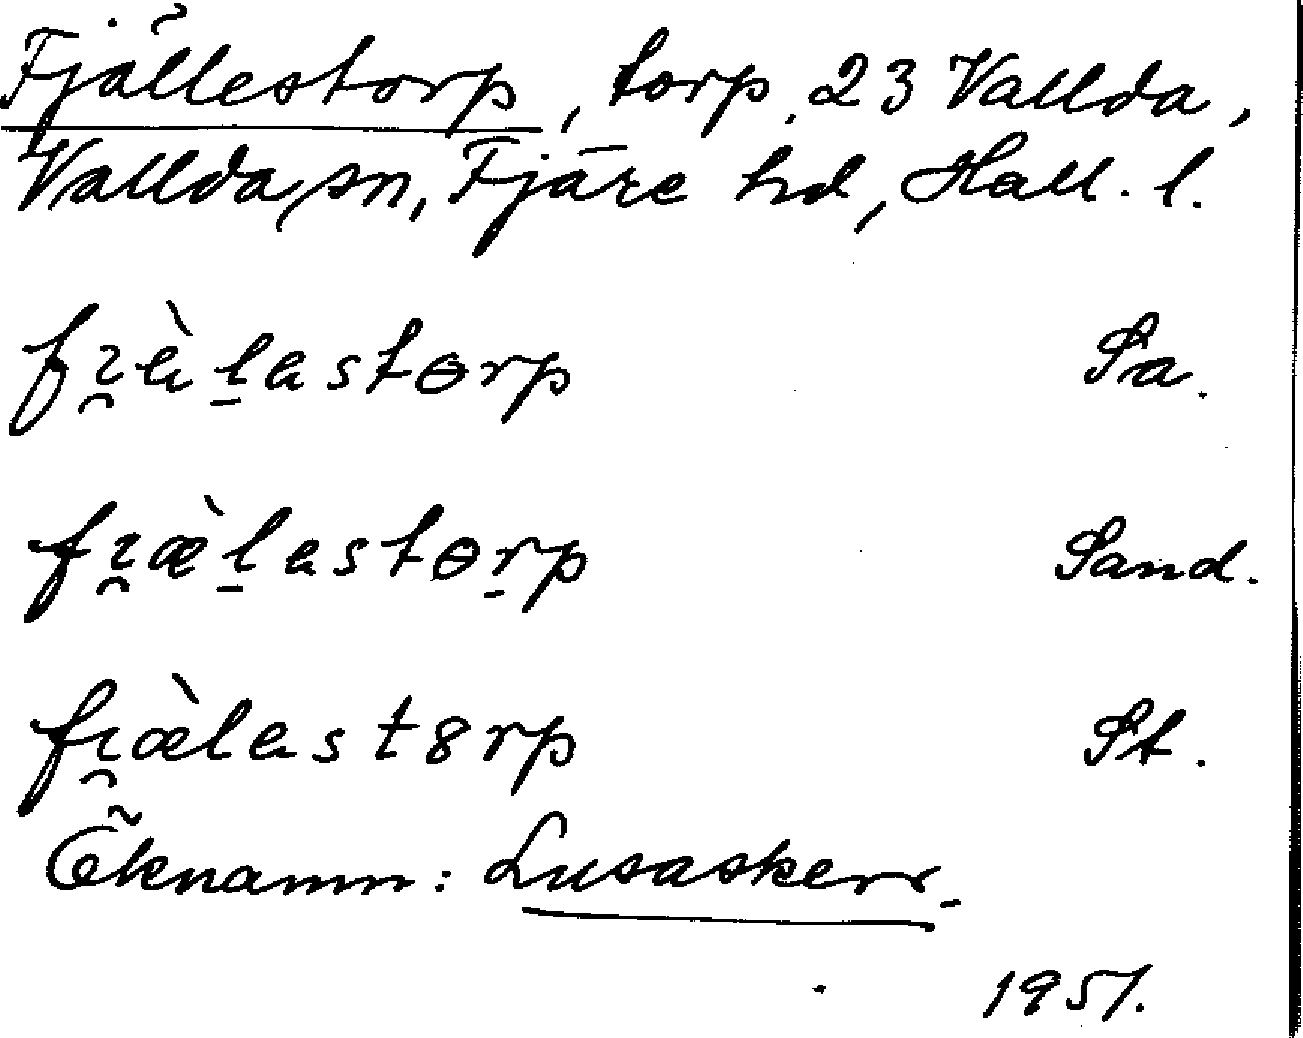 Fjällestorp, torp, 23 Vallda,
Vallda sn, Fjäre hd, Hall. l.
fɪ̯æ̀l̠astɵrp Sa.
fɪ̯æ̀l̠astɵr̠p Sand.
fɪ̯æ̀last8rp St.
Öknamn: Lusasker.
1951.